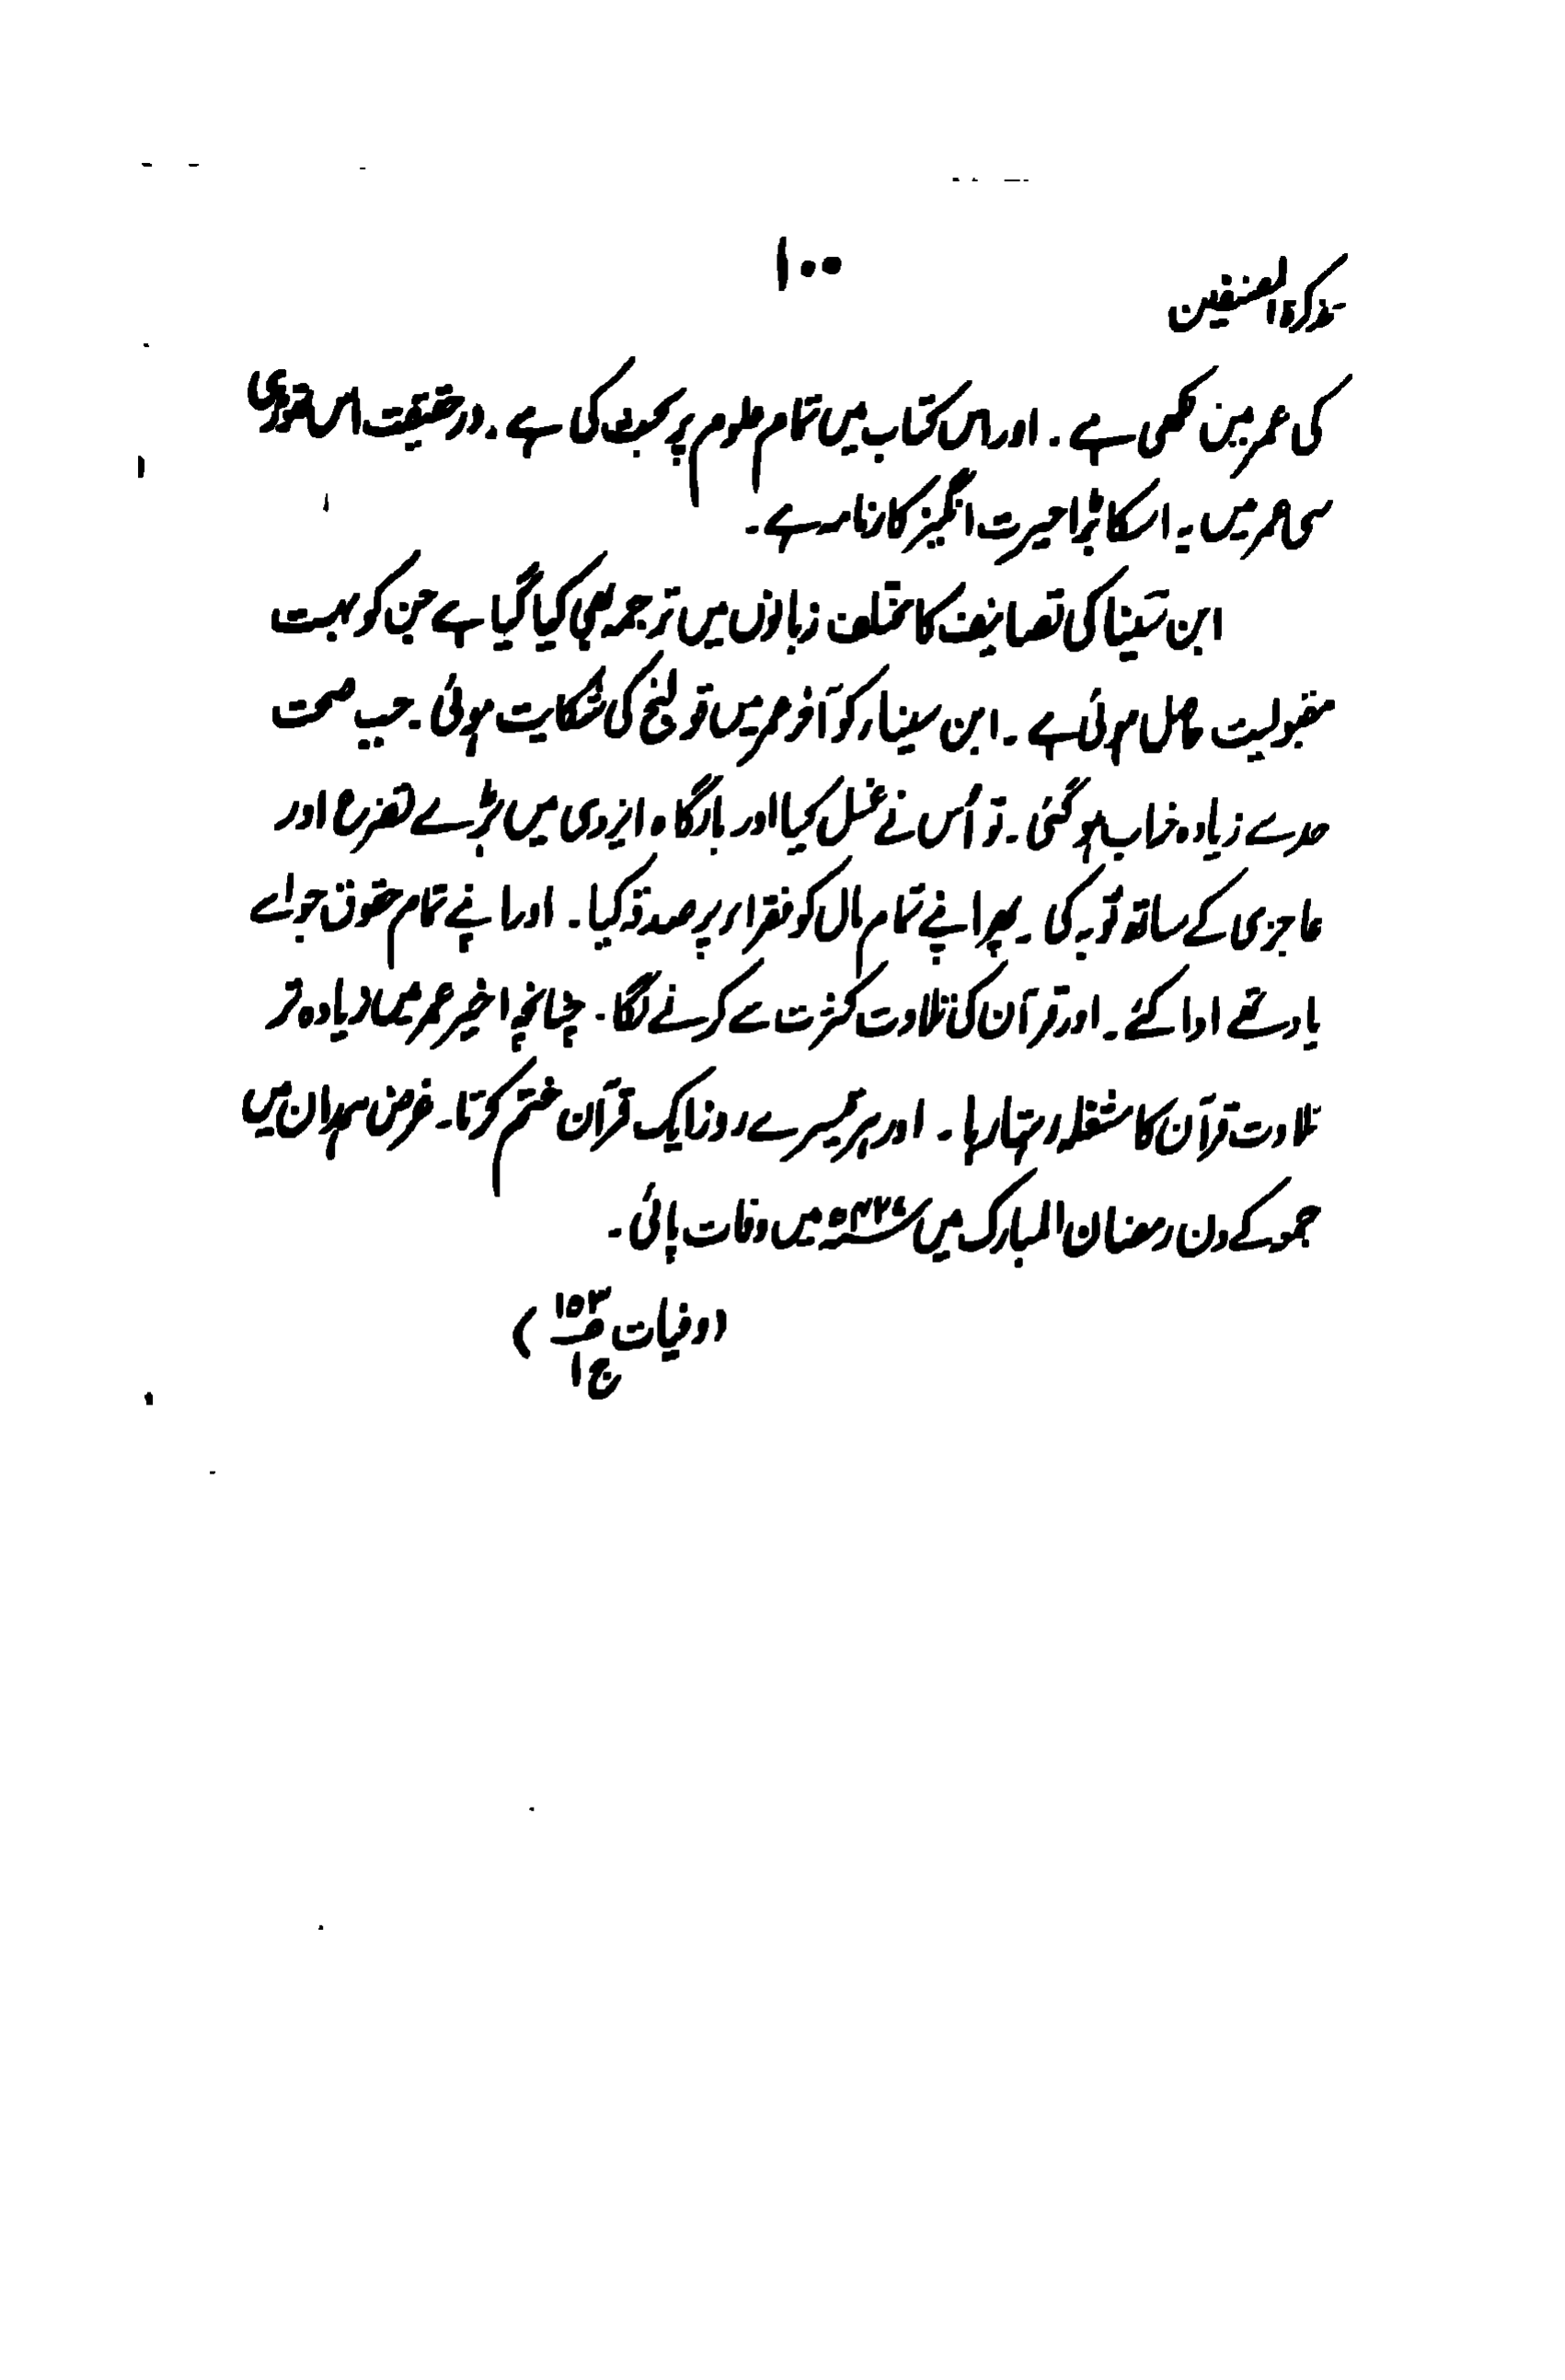 ۱۰۰
تذکرۃ المصنفین
کی عمر میں لکھی ہے ۔ اور اس کتاب میں تمام علوم پر بحث کی ہے ۔ درحقیقت اس تھوڑی
سی عمر میں یہ اسکا بڑا حیرت انگیز کارنامہ ہے ۔
ابن سینا کی تصانیف کا مختلف زبانوں میں ترجمہ بھی کیا گیا ہے جن کو بہت
مقبولیت حاصل ہوئی ہے ۔ ابن سیناء کو آخر عمر میں قولنج کی شکایت ہوئی ۔ جب صحت
حد سے زیادہ خراب ہو گئی ۔ تو اُس نے غسل کیا اور بارگاہ ایزدی میں بڑے تضرع اور
عاجزی کے ساتھ توبہ کی ۔ پھر اپنے تمام مال کو فقراء پر صدقہ کیا ۔ اور اپنے تمام حقوق جو اسے
یاد تھے ادا کئے ۔ اور قرآن کی تلاوت کثرت سے کرنے لگا ۔ چنانچہ اخیر عمر میں زیادہ تر
تلاوت قرآن کا مشغلہ رہتا رہا ۔ اور ہر تیسرے روز ایک قرآن ختم کرتا ۔ غرض ہمدان میں
جمعہ کے دن رمضان المبارک میں ۴۲۸ھ میں وفات پائی ۔
(وفیات ص۱۵۳ ج۱)